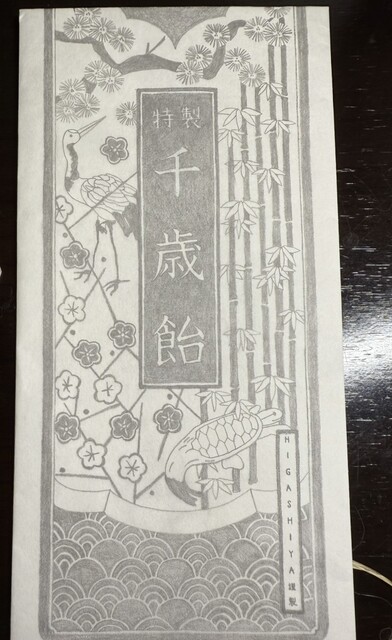 特製
千歳飴
HIGASHIYA謹製